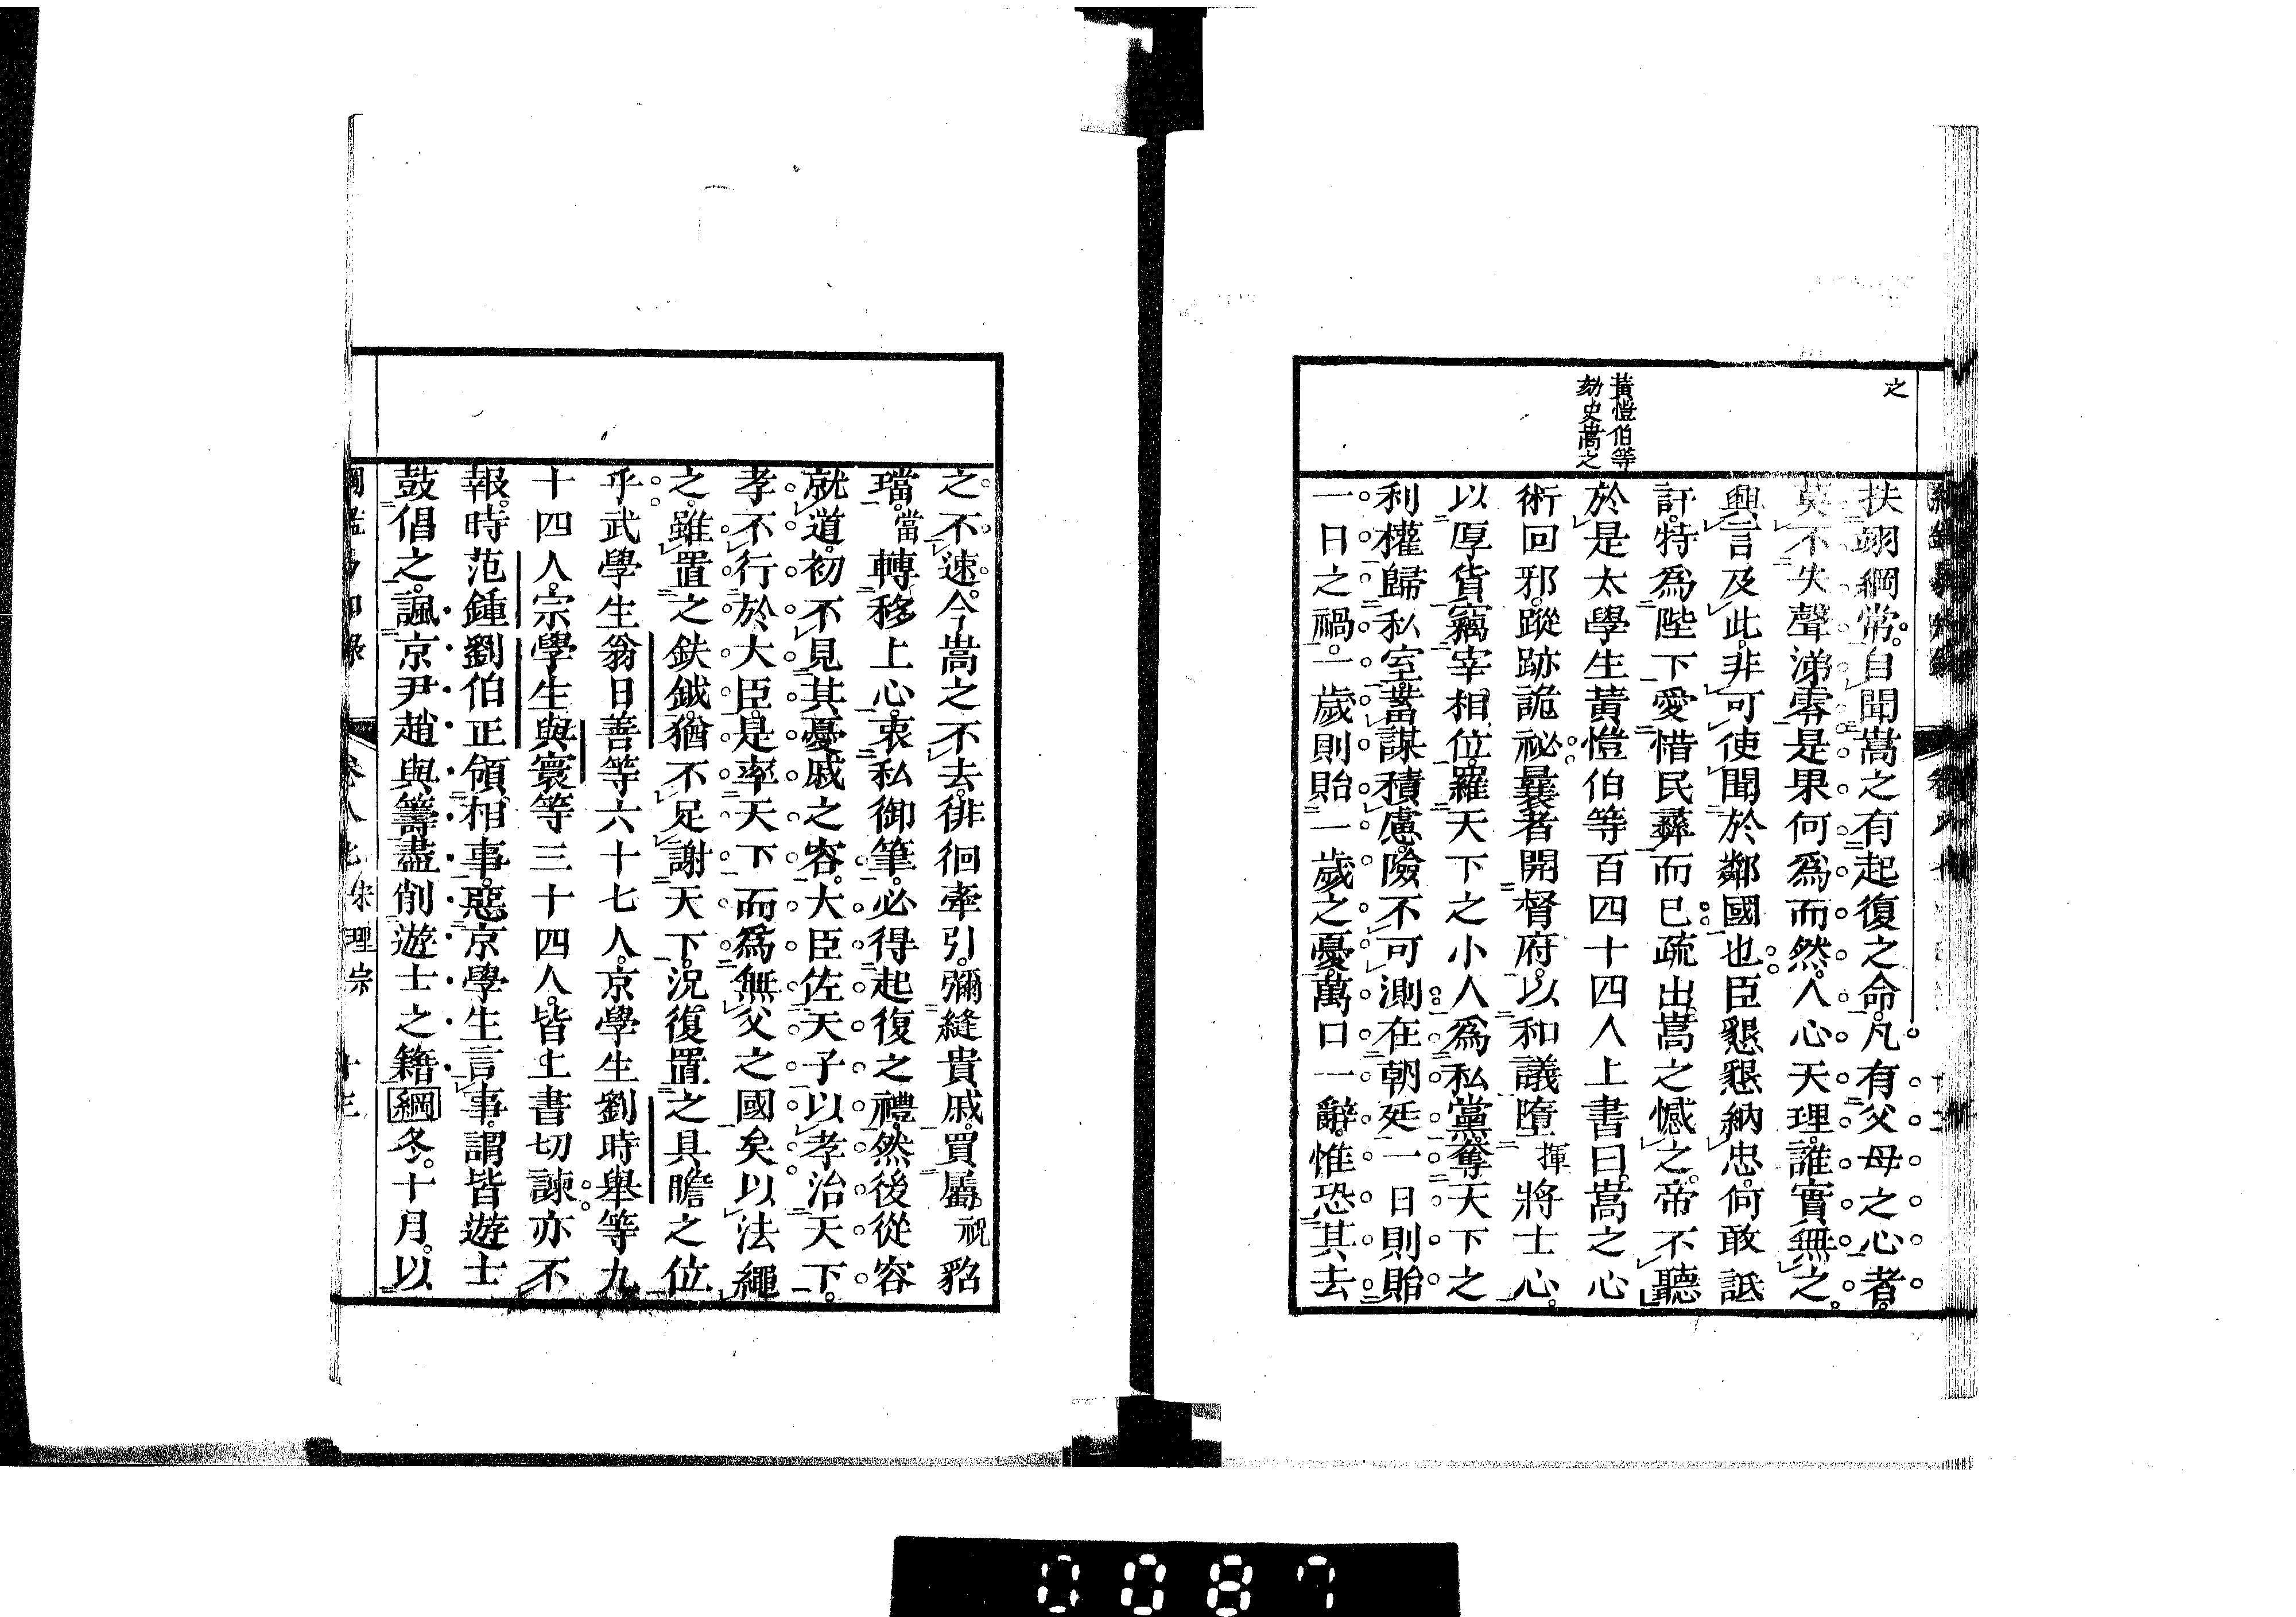 之
黃愷伯等
劾史嵩之
扶翊綱常。自聞嵩之有起復之命。凡有父母之心者。
莫不失聲涕零。是果何爲而然。人心天理。誰實無之。
興言及此。非可使聞於鄰國也。臣懇懇納忠。何敢詆
訐。特爲陛下愛惜民彛而已。疏出。嵩之憾之。帝不聽。
於是太學生黃愷伯等百四十四人上書曰。嵩之心
術回邪。蹤跡詭祕。曩者開督府。以和議墮揮將士心。
以厚貨竊宰相位。羅天下之小人爲私黨。奪天下之
利權歸私室。蓄謀積慮。險不可測。在朝廷一日則貽
一日之禍。一歲則貽一歲之憂。萬口一辭。惟恐其去
之不速。今嵩之不去。徘徊牽引。彌縫貴戚。買屬祝貂
璫當。轉移上心。衷私御筆。必得起復之禮。然後從容
就道。初不見其憂戚之容。大臣佐天子以孝治天下。
孝不行於大臣。是率天下而爲無父之國矣。以法繩
之。雖置之鈇鉞。猶不足謝天下。況復置之具瞻之位
乎。武學生翁日善等六十七人。京學生劉時舉等九
十四人。宗學生與寰等三十四人。皆上書切諫。亦不
報。時范鍾劉伯正領相事。惡京學生言事。謂皆遊士
鼓倡之。諷京尹趙與籌盡削遊士之籍。綱冬。十月。以
卷八 宋理宗 十三
0087